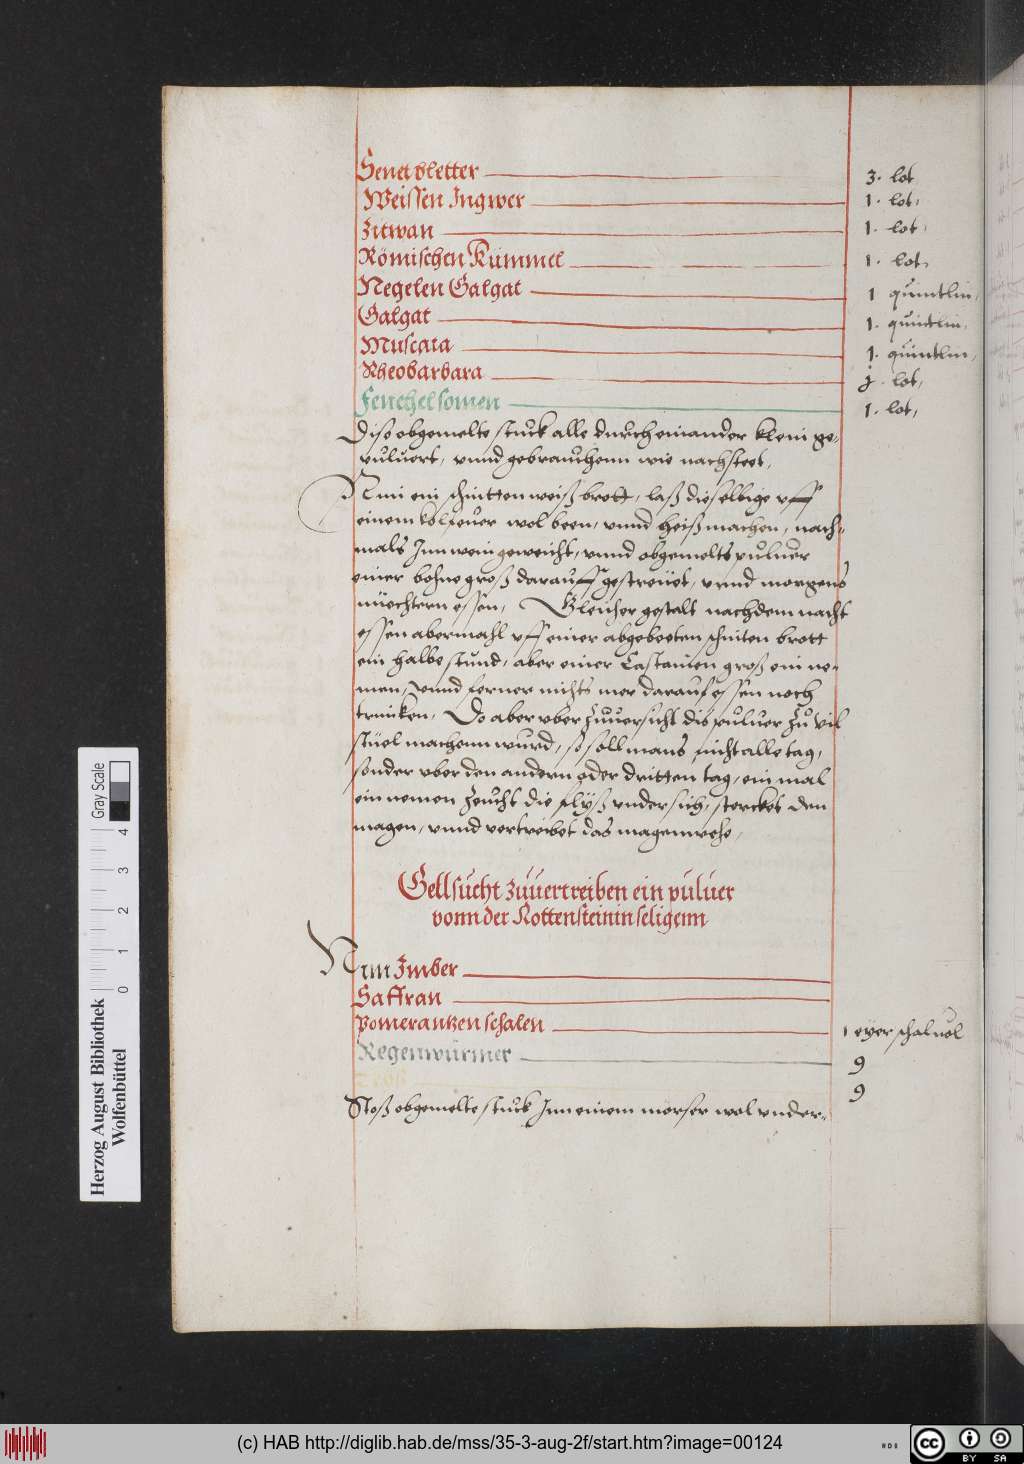 Senet bletter 3. lot
Weissen Ingwer 1. lot,
Zitwan 1. lot,
Römischen Kümmel 1. lot,
Negelen Galgat 1 quintlin,
Galgat 1. quintlin,
Muscata 1. quintlin,
Rheobarbara j. lot,
Fenchelsomen 1. lot,
Dise obgemelte stuck alle durcheinander klein ge-
puluert, vnnd gebrauchenn wie nachsteet,
Nim ein schnitten weiß brott, laß dieselbige vff
einem kolfeuer wol been, vnnd heiß machen, nach-
mals Inn wein geweicht, vnnd obgemelts puluer
einer bohne groß darauff gestreuet, vnnd morgens
nüechtern essen, Gleicher gestalt nach dem nacht
essen abermahl vff einer abgebeeten schniten brott
ein halbe stund, aber einer Castanien groß ein ne-
men, vnnd ferner nichts mer darauf essen noch
trincken, Do aber vber zuuersicht dis puluer zu vil
stüel machenn wurd, so soll mans nicht alle tag,
sonder vber den andern oder dritten tag, ein mal
ein nemen zeucht die flüß vndersich, sterckt den
magen, vnnd vertreibet das magenwehe,
Gellsucht zuuertreiben ein puluer
vonn der Rottensteinin seligenn
Nim Imber
Saffran
Pomerantzen schalen 1 eyer schal uol
Regenwürmer 9
9
Stoß obgemelte stuck Inn einem mörser wol vnder-
Gray Scale
0 1 2 3 4
Herzog August Bibliothek
Wolfenbüttel
(c) HAB http://diglib.hab.de/mss/35-3-aug-2f/start.htm?image=00124
cc BY SA